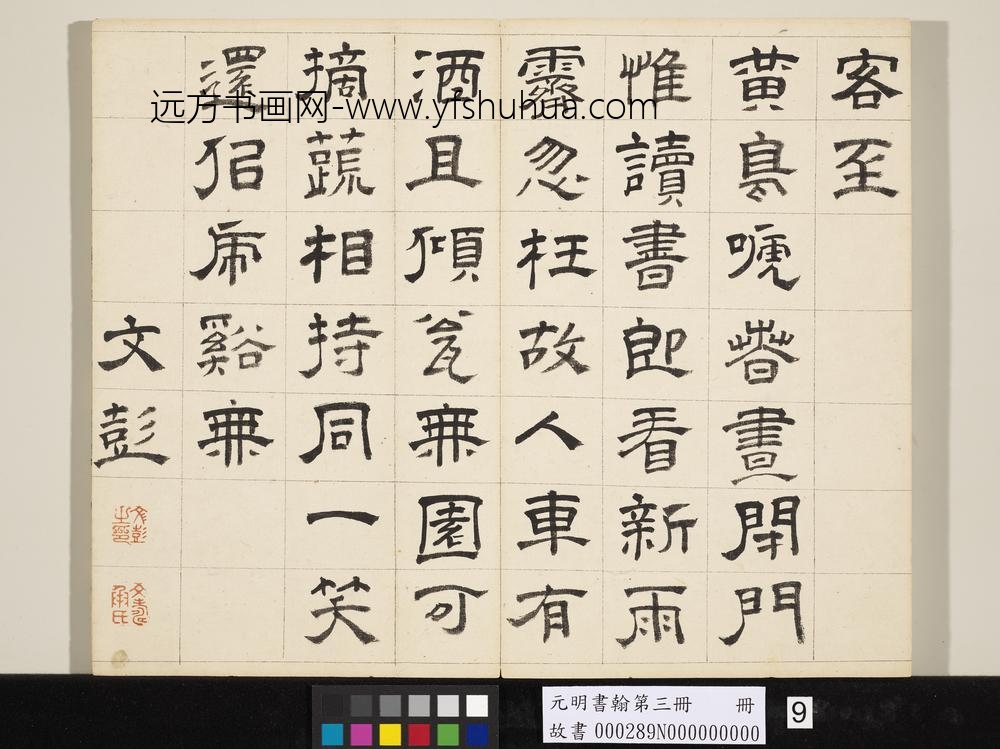 客至
黃鳥嗁萅晝閉門
惟讀書即看新雨
霽忽枉故人車有
酒且傾瓮無園可
摘蔬相持同一笑
還佀虎谿無
文彭
文彭之印
文壽承氏
远方书画网-www.yfshuhua.com
元明書翰第三冊 冊
故書 000289N000000000
9